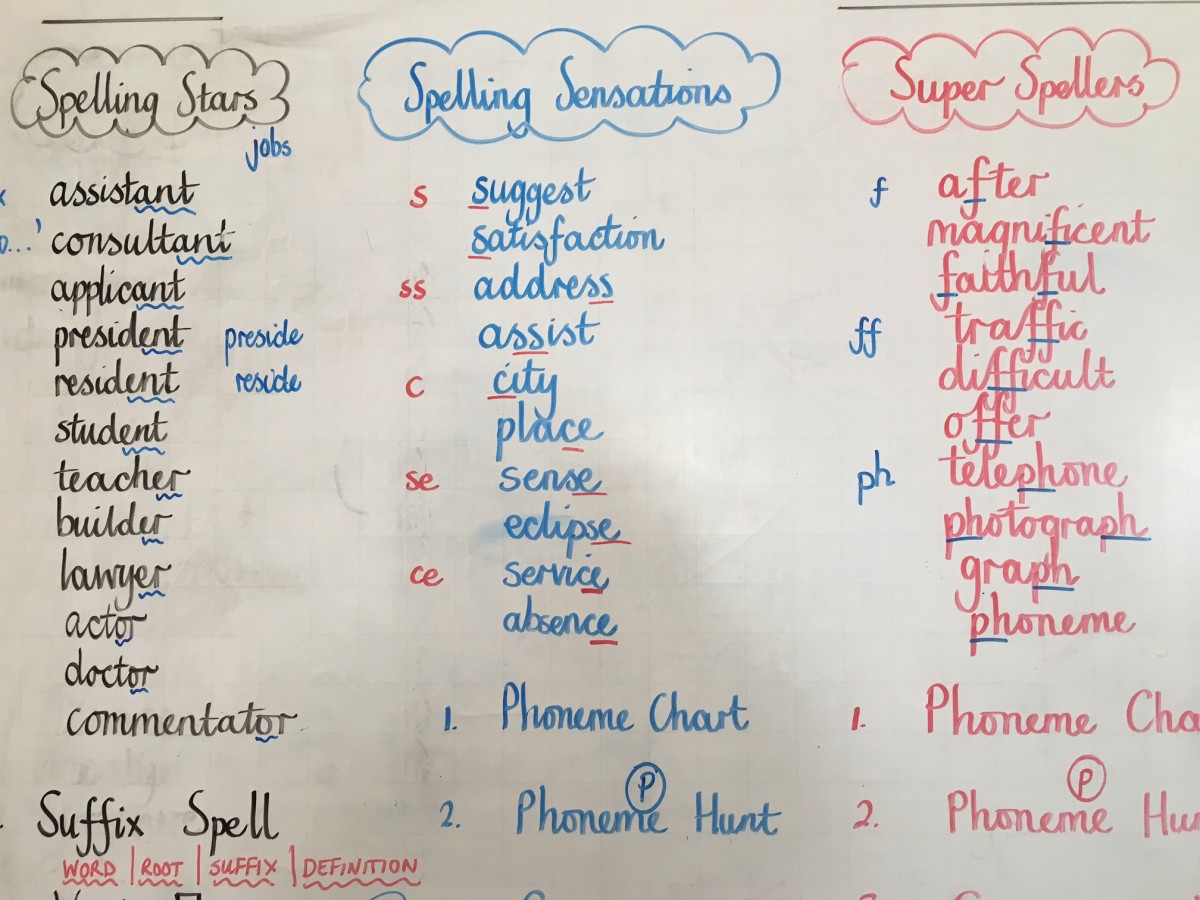 Spelling Stars
jobs
assistant
consultant
applicant
president preside
resident reside
student
teacher
builder
lawyer
actor
doctor
commentator
Suffix Spell
WORD | ROOT | SUFFIX | DEFINITION
Spelling Sensations
s suggest
satisfaction
ss address
assist
c city
place
se sense
eclipse
ce service
absence
1. Phoneme Chart
2. Phoneme Hunt
P
Super Spellers
f after
magnificent
faithful
ff traffic
difficult
offer
ph telephone
photograph
graph
phoneme
1. Phoneme Cha
2. Phoneme Hu
P